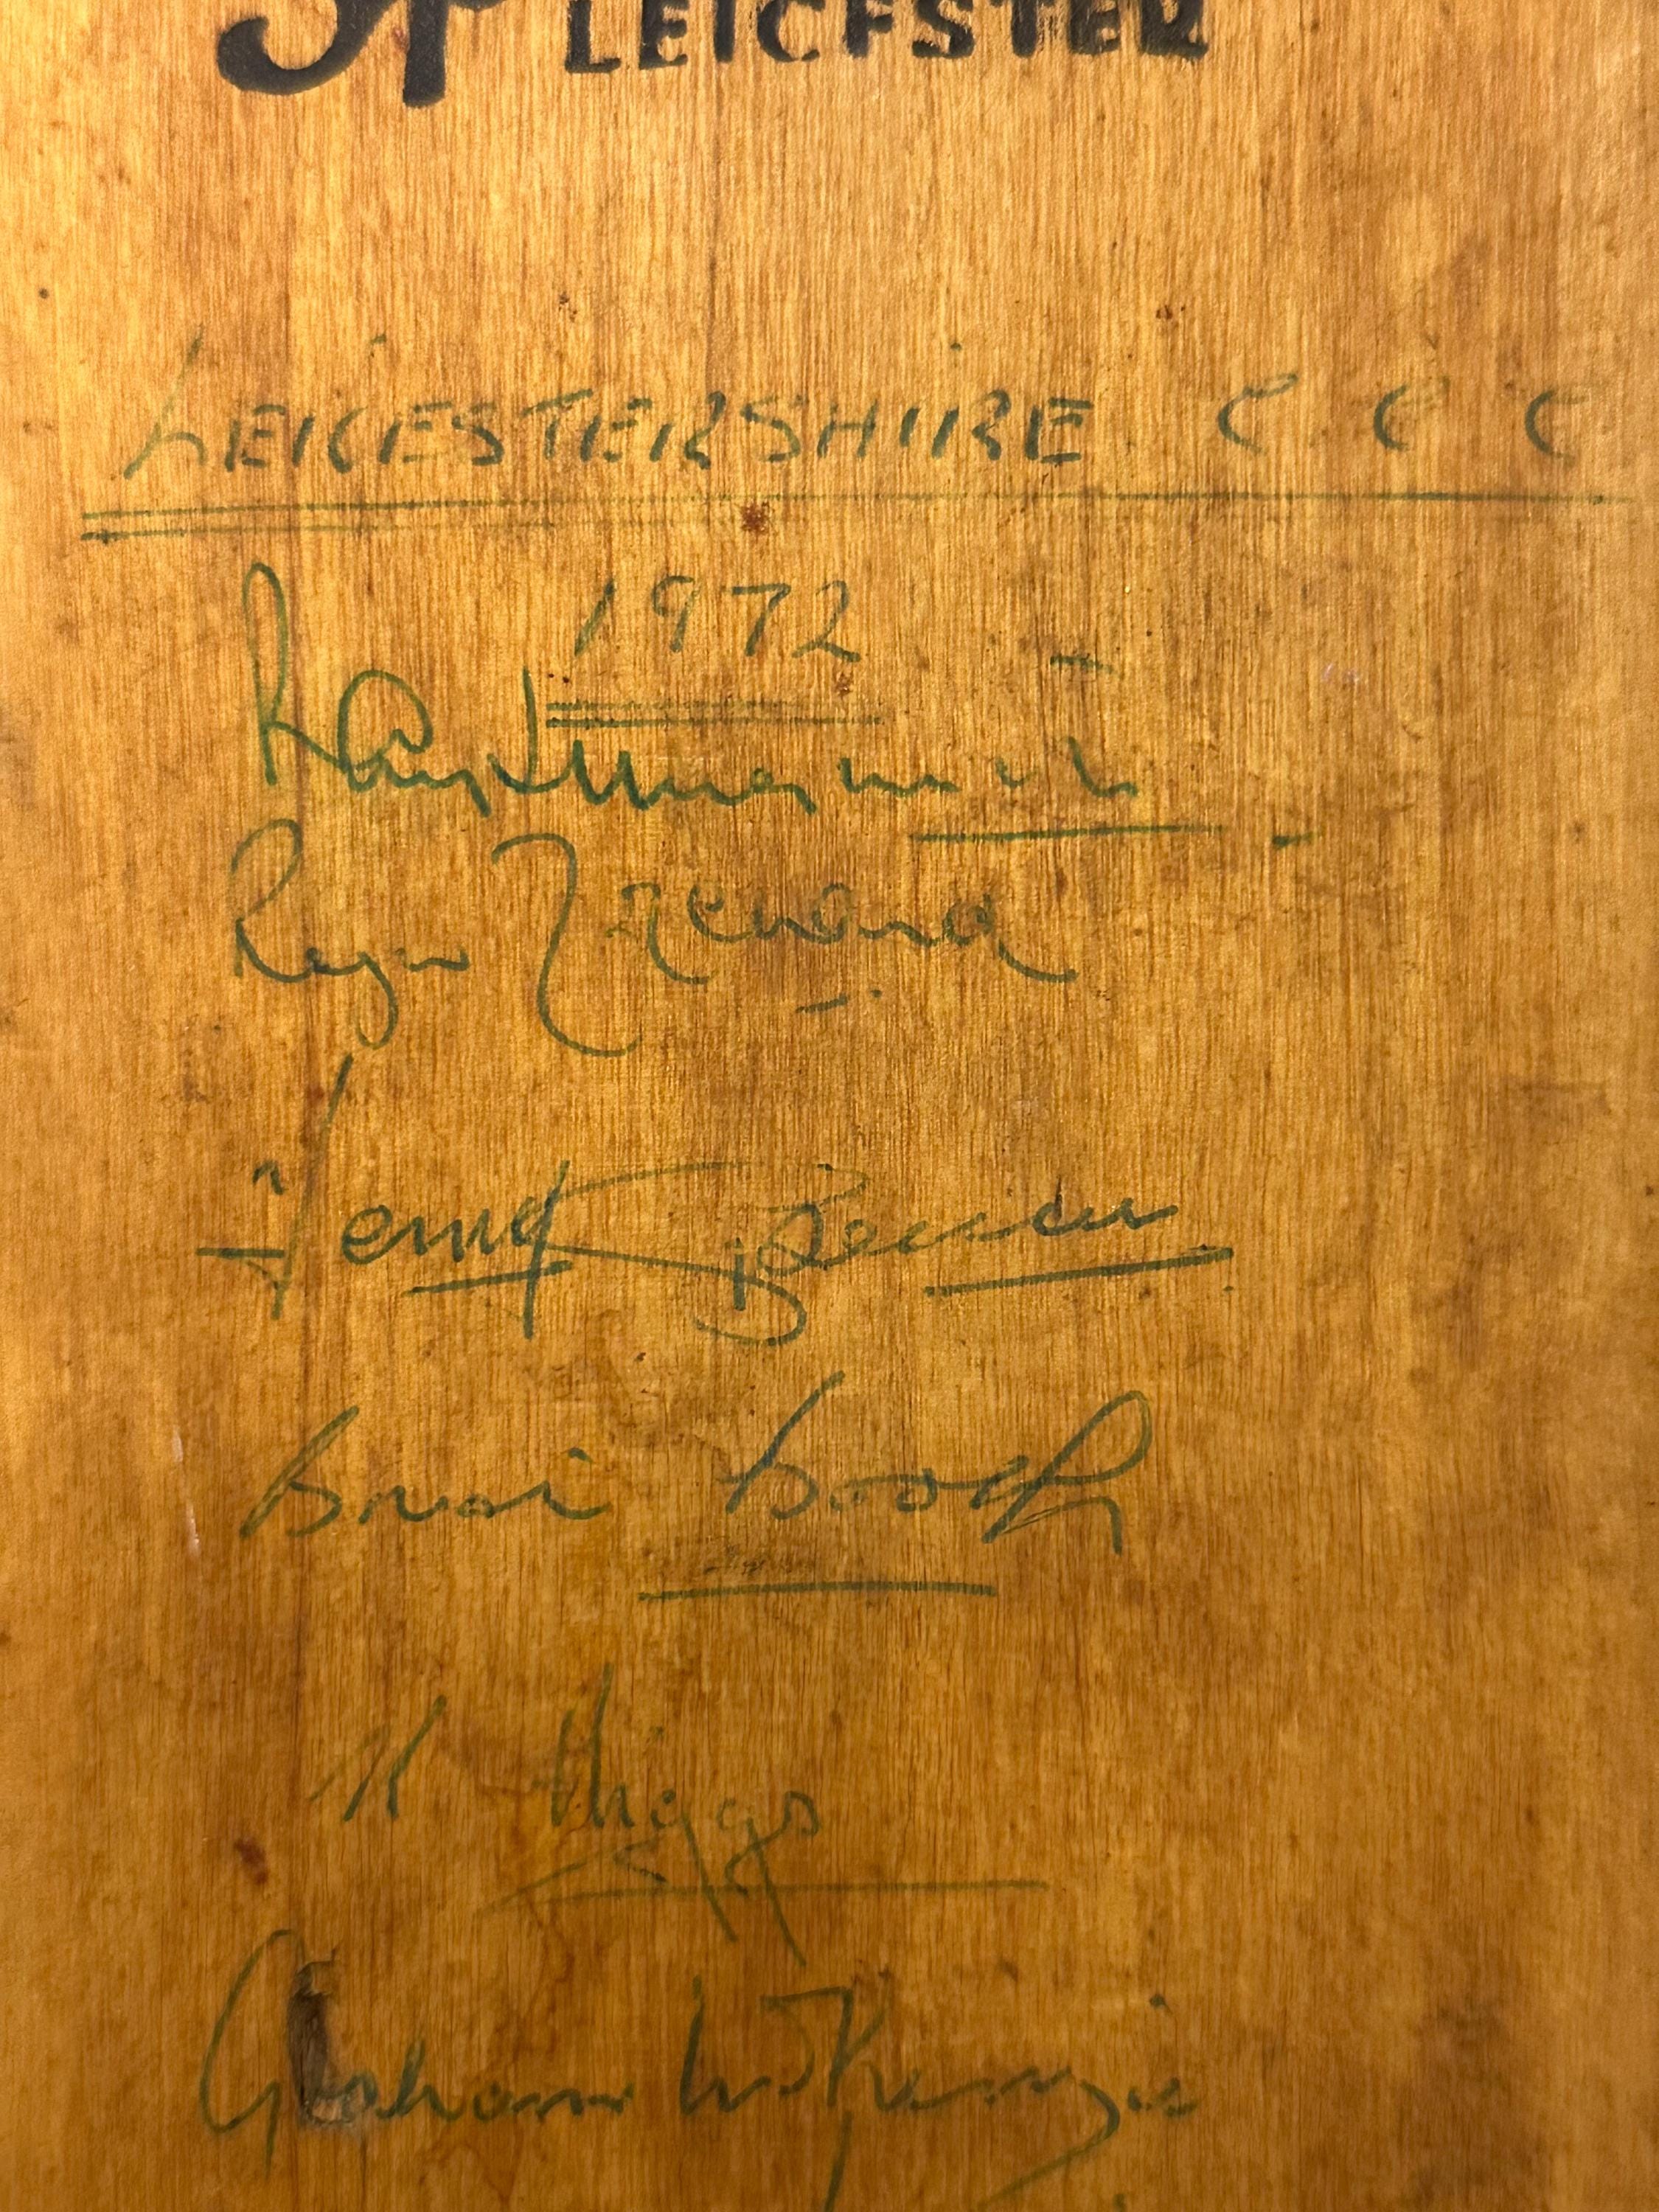 LEICESTER
LEICESTERSHIRE C C C
1972
Ray Illingworth
Roger Tolchard
Terry Spencer
Brian Booth
K Higgs
Graham McKenzie